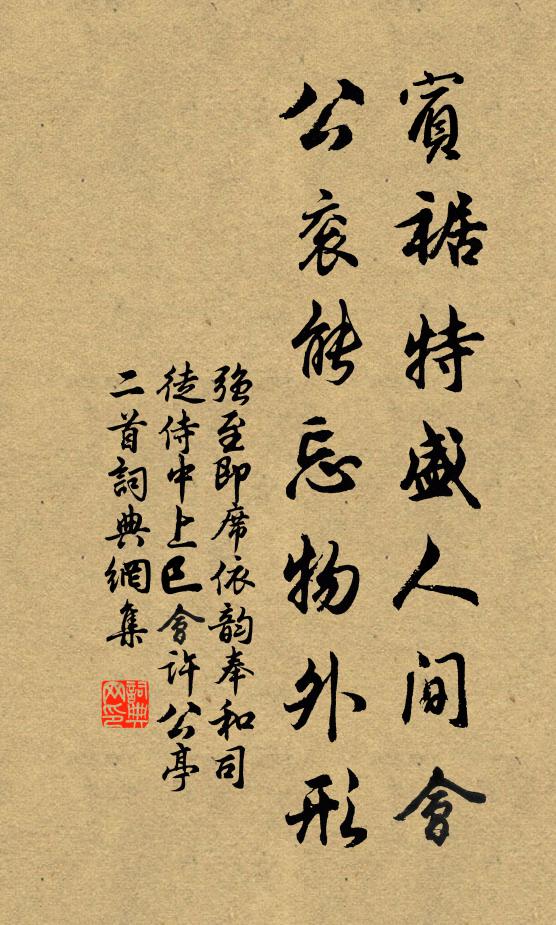 賓裾特盛人間會
公衮能忘物外形
強至即席依韵奉和司
徒侍中上巳會許公亭
二首詞典網集
詞典
网印